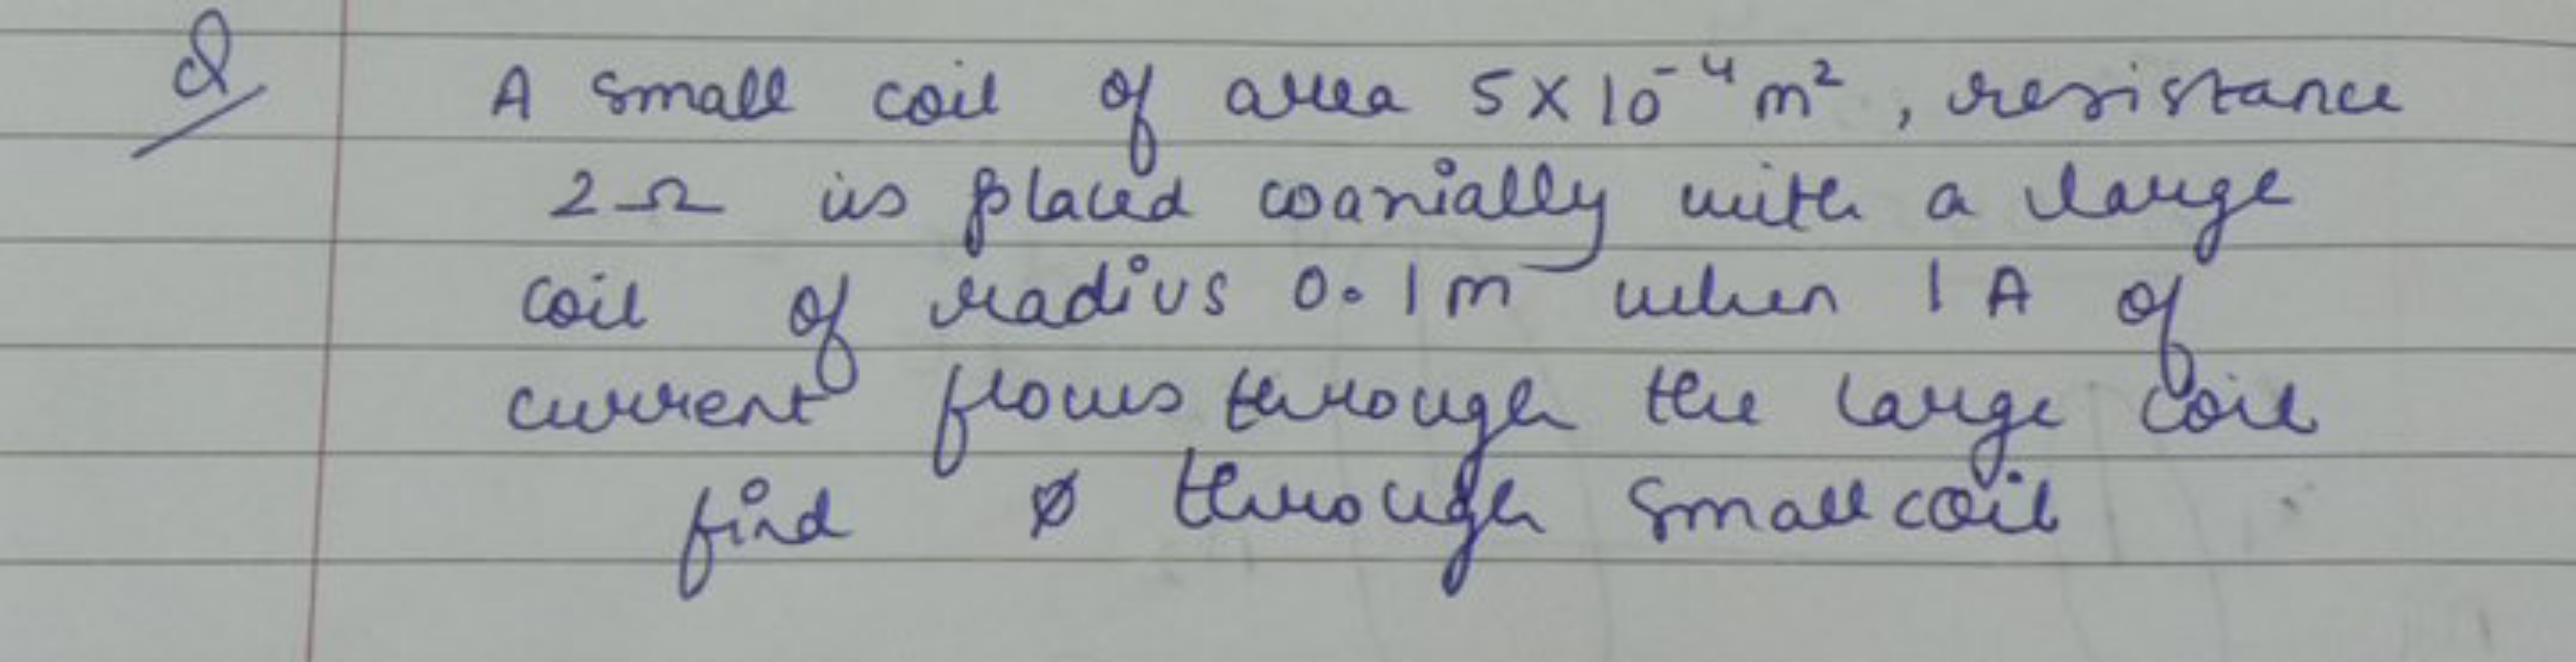 Q
A small coil of area 5×10⁻⁴ m², resistance
2Ω is placed coaxially with a large
coil of radius 0.1m when 1 A of
current flows through the large coil
find ø through small coil